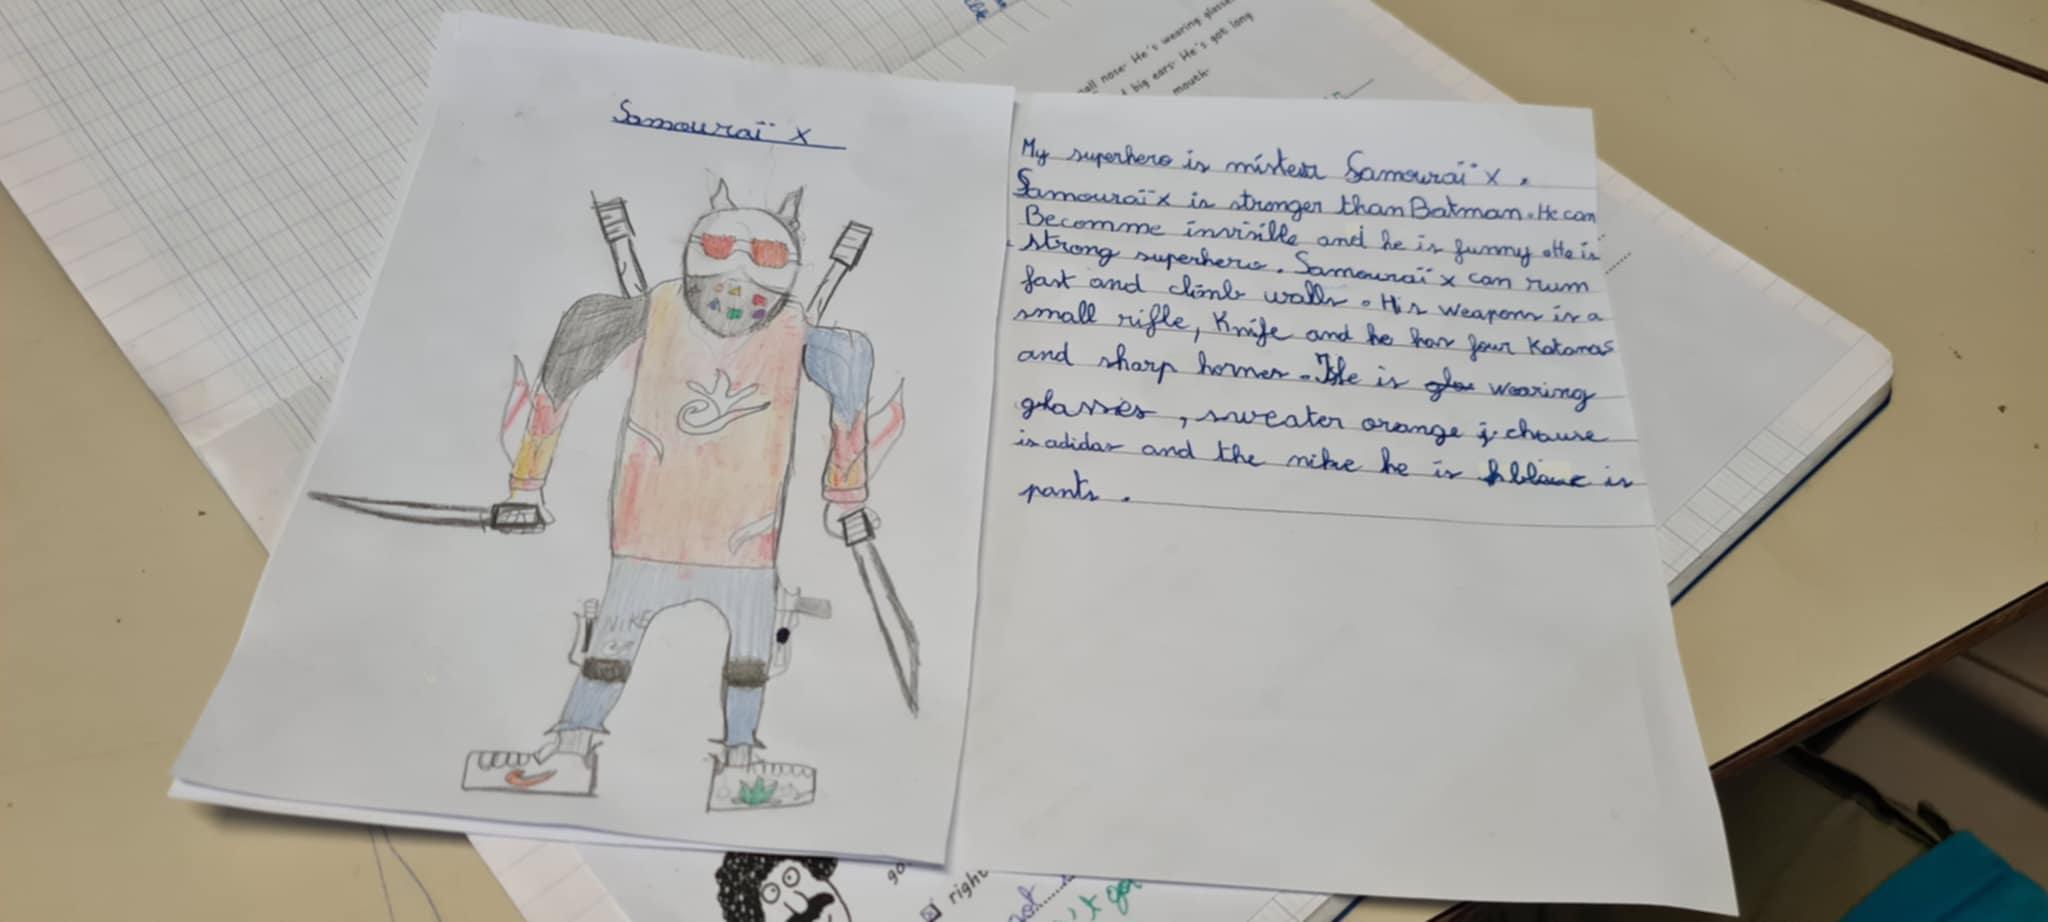 Samouraï x
NIKE
My superhero is mister Samouraï x.
Samouraï x is stronger than Batman. He can
Becomme invisible and he is funny. He is
strong superhero. Samouraï x can rum
fast and climb walls. His weapons is a
small rifle, Knife and he has four Katanas
and sharp hornes. He is wearing
glasses, sweater orange j. chause
is adidas and the nike he is is
pants.
all nose. He's wearing glasses
big ears. He's got long
mouth.
go
right
not
't got